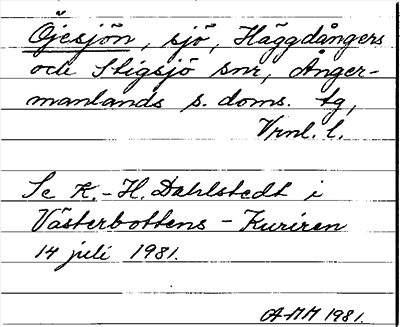 Öjesjön, sjö, Häggdångers
och Stigsjö snr, Ånger-
manlands s. doms. tg,
Vrnl. l.
Se K.-H. Dahlstedt i
Västerbottens-Kuriren
14 juli 1981.
A-MH 1981.